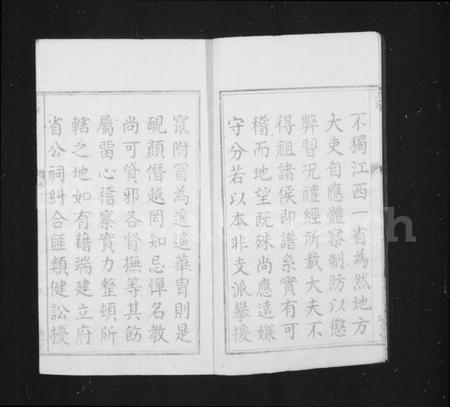 不獨江西一省為然地方
大吏自應體察制防以懲
弊習況禮經所載大夫不
得祖諸侯即譜系實有可
稽而地望既殊尚應遠嫌
守分若以本非支派攀援
竄附冒為遥遥華冑則是
靦顏僭越罔知忌憚名教
尚可貸邪各督撫等其飭
屬畱心稽察實力整頓所
轄之地如有藉端建立府
省公祠糾合匪類健訟擾